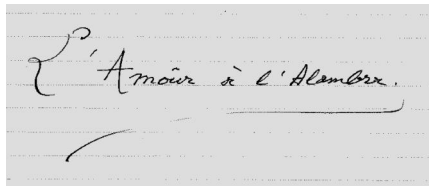 L'Amôur à l'Alambra.